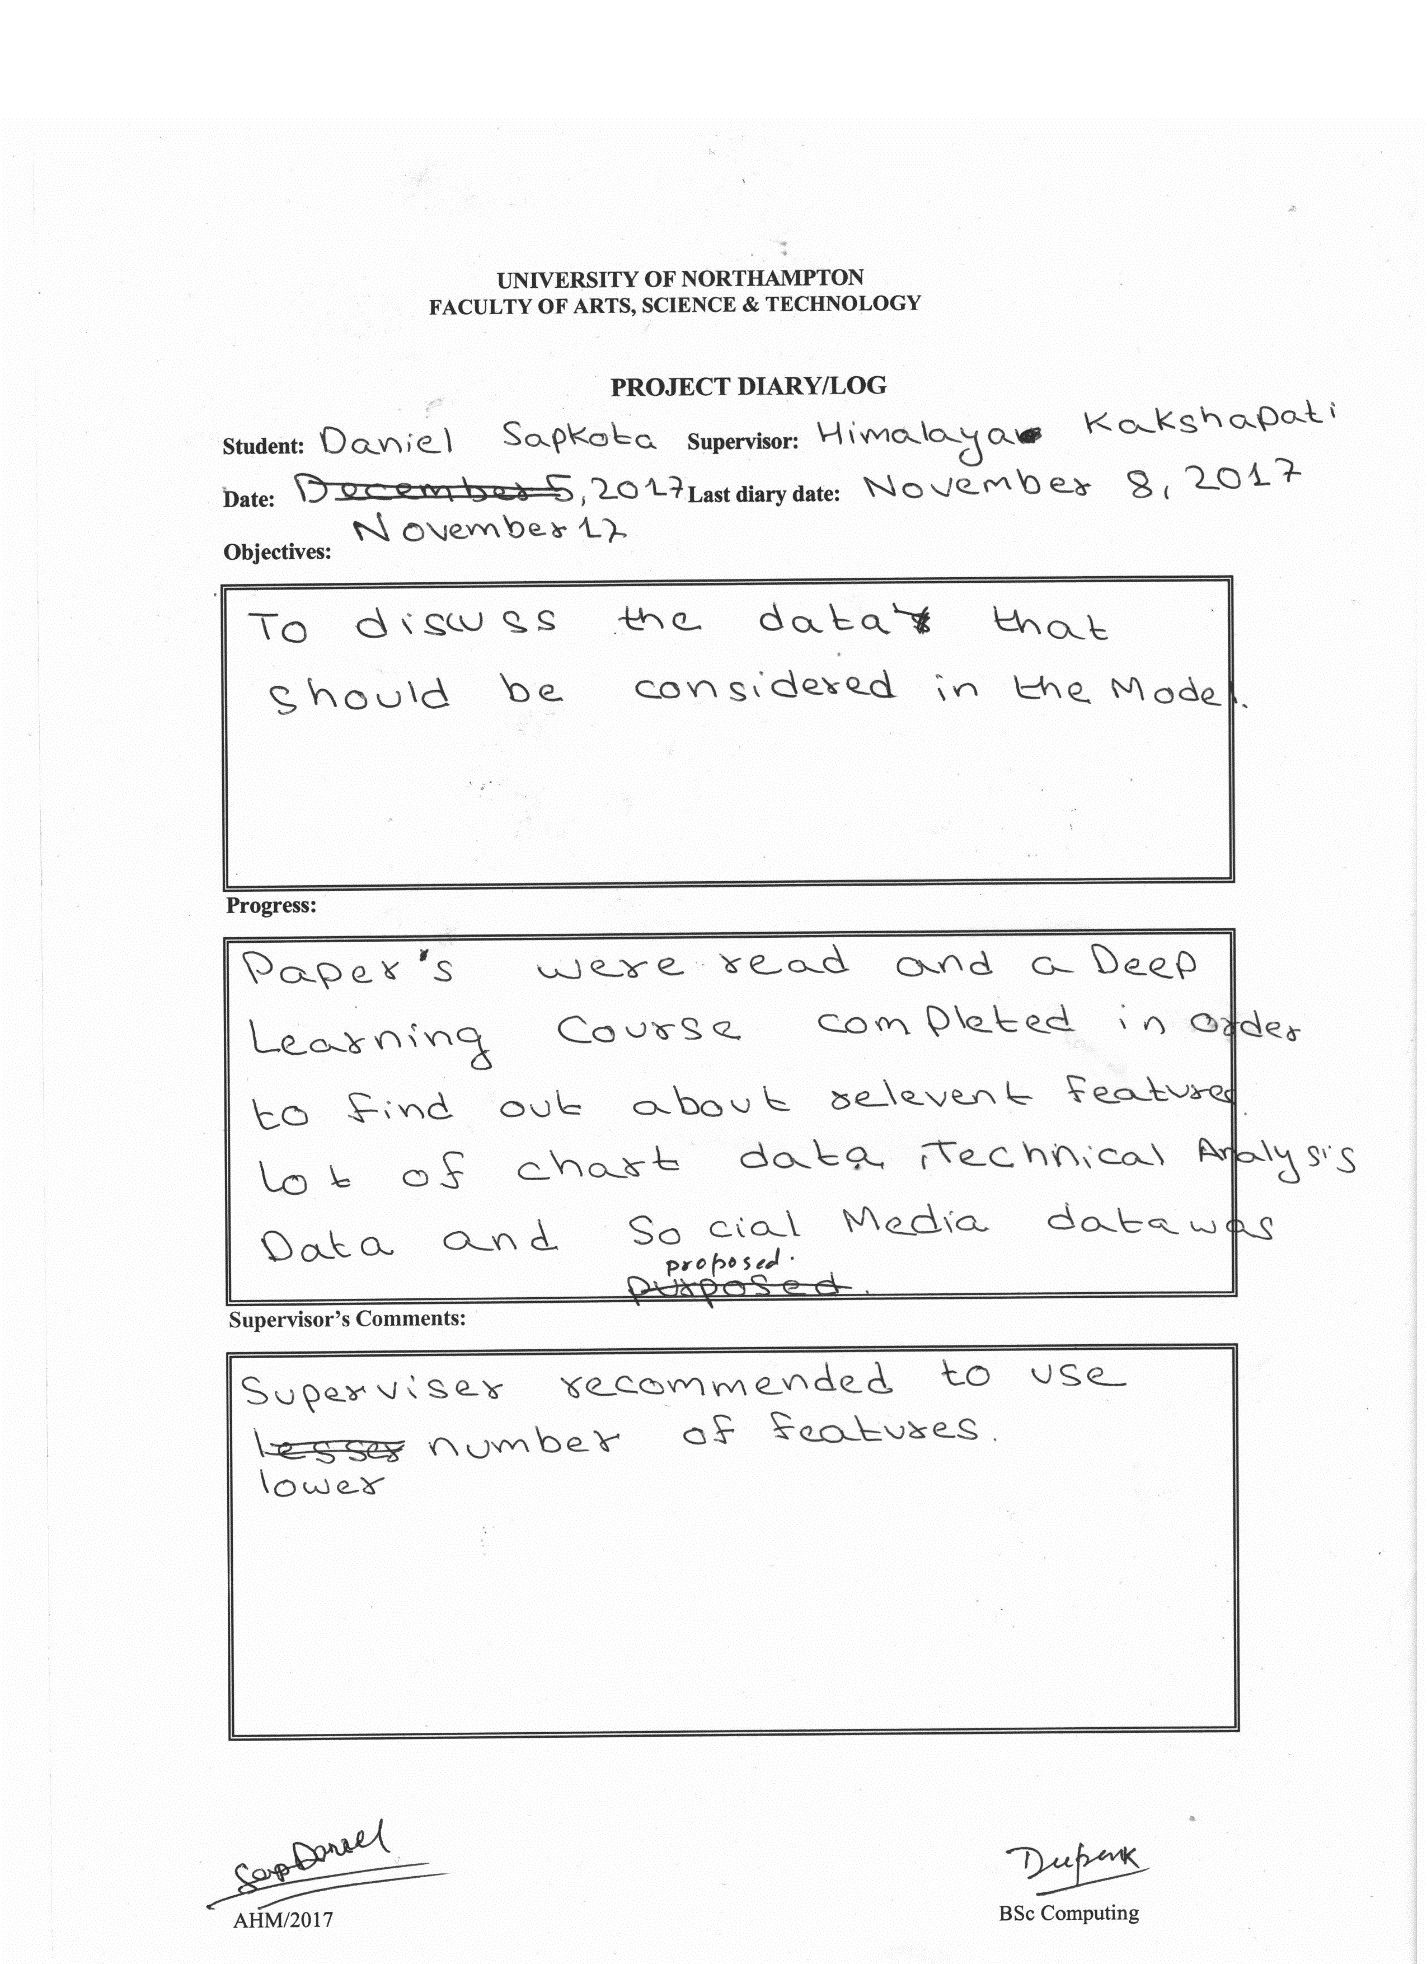 UNIVERSITY OF NORTHAMPTON
FACULTY OF ARTS, SCIENCE & TECHNOLOGY
PROJECT DIARY/LOG
Student: Daniel Sapkota Supervisor: Himalaya Kakshapati
Date: December 5, 2017 Last diary date: November 8, 2017
November 12
Objectives:
To discuss the data that
should be considered in the Model.
Progress:
Paper's were read and a Deep
Learning Course completed in order
to find out about relevent features.
lot of chart data, Technical Analysis
Data and Social Media data was
proposed.
purposed.
Supervisor's Comments:
Superviser recommended to use
lesser number of features.
lower
AHM/2017
BSc Computing